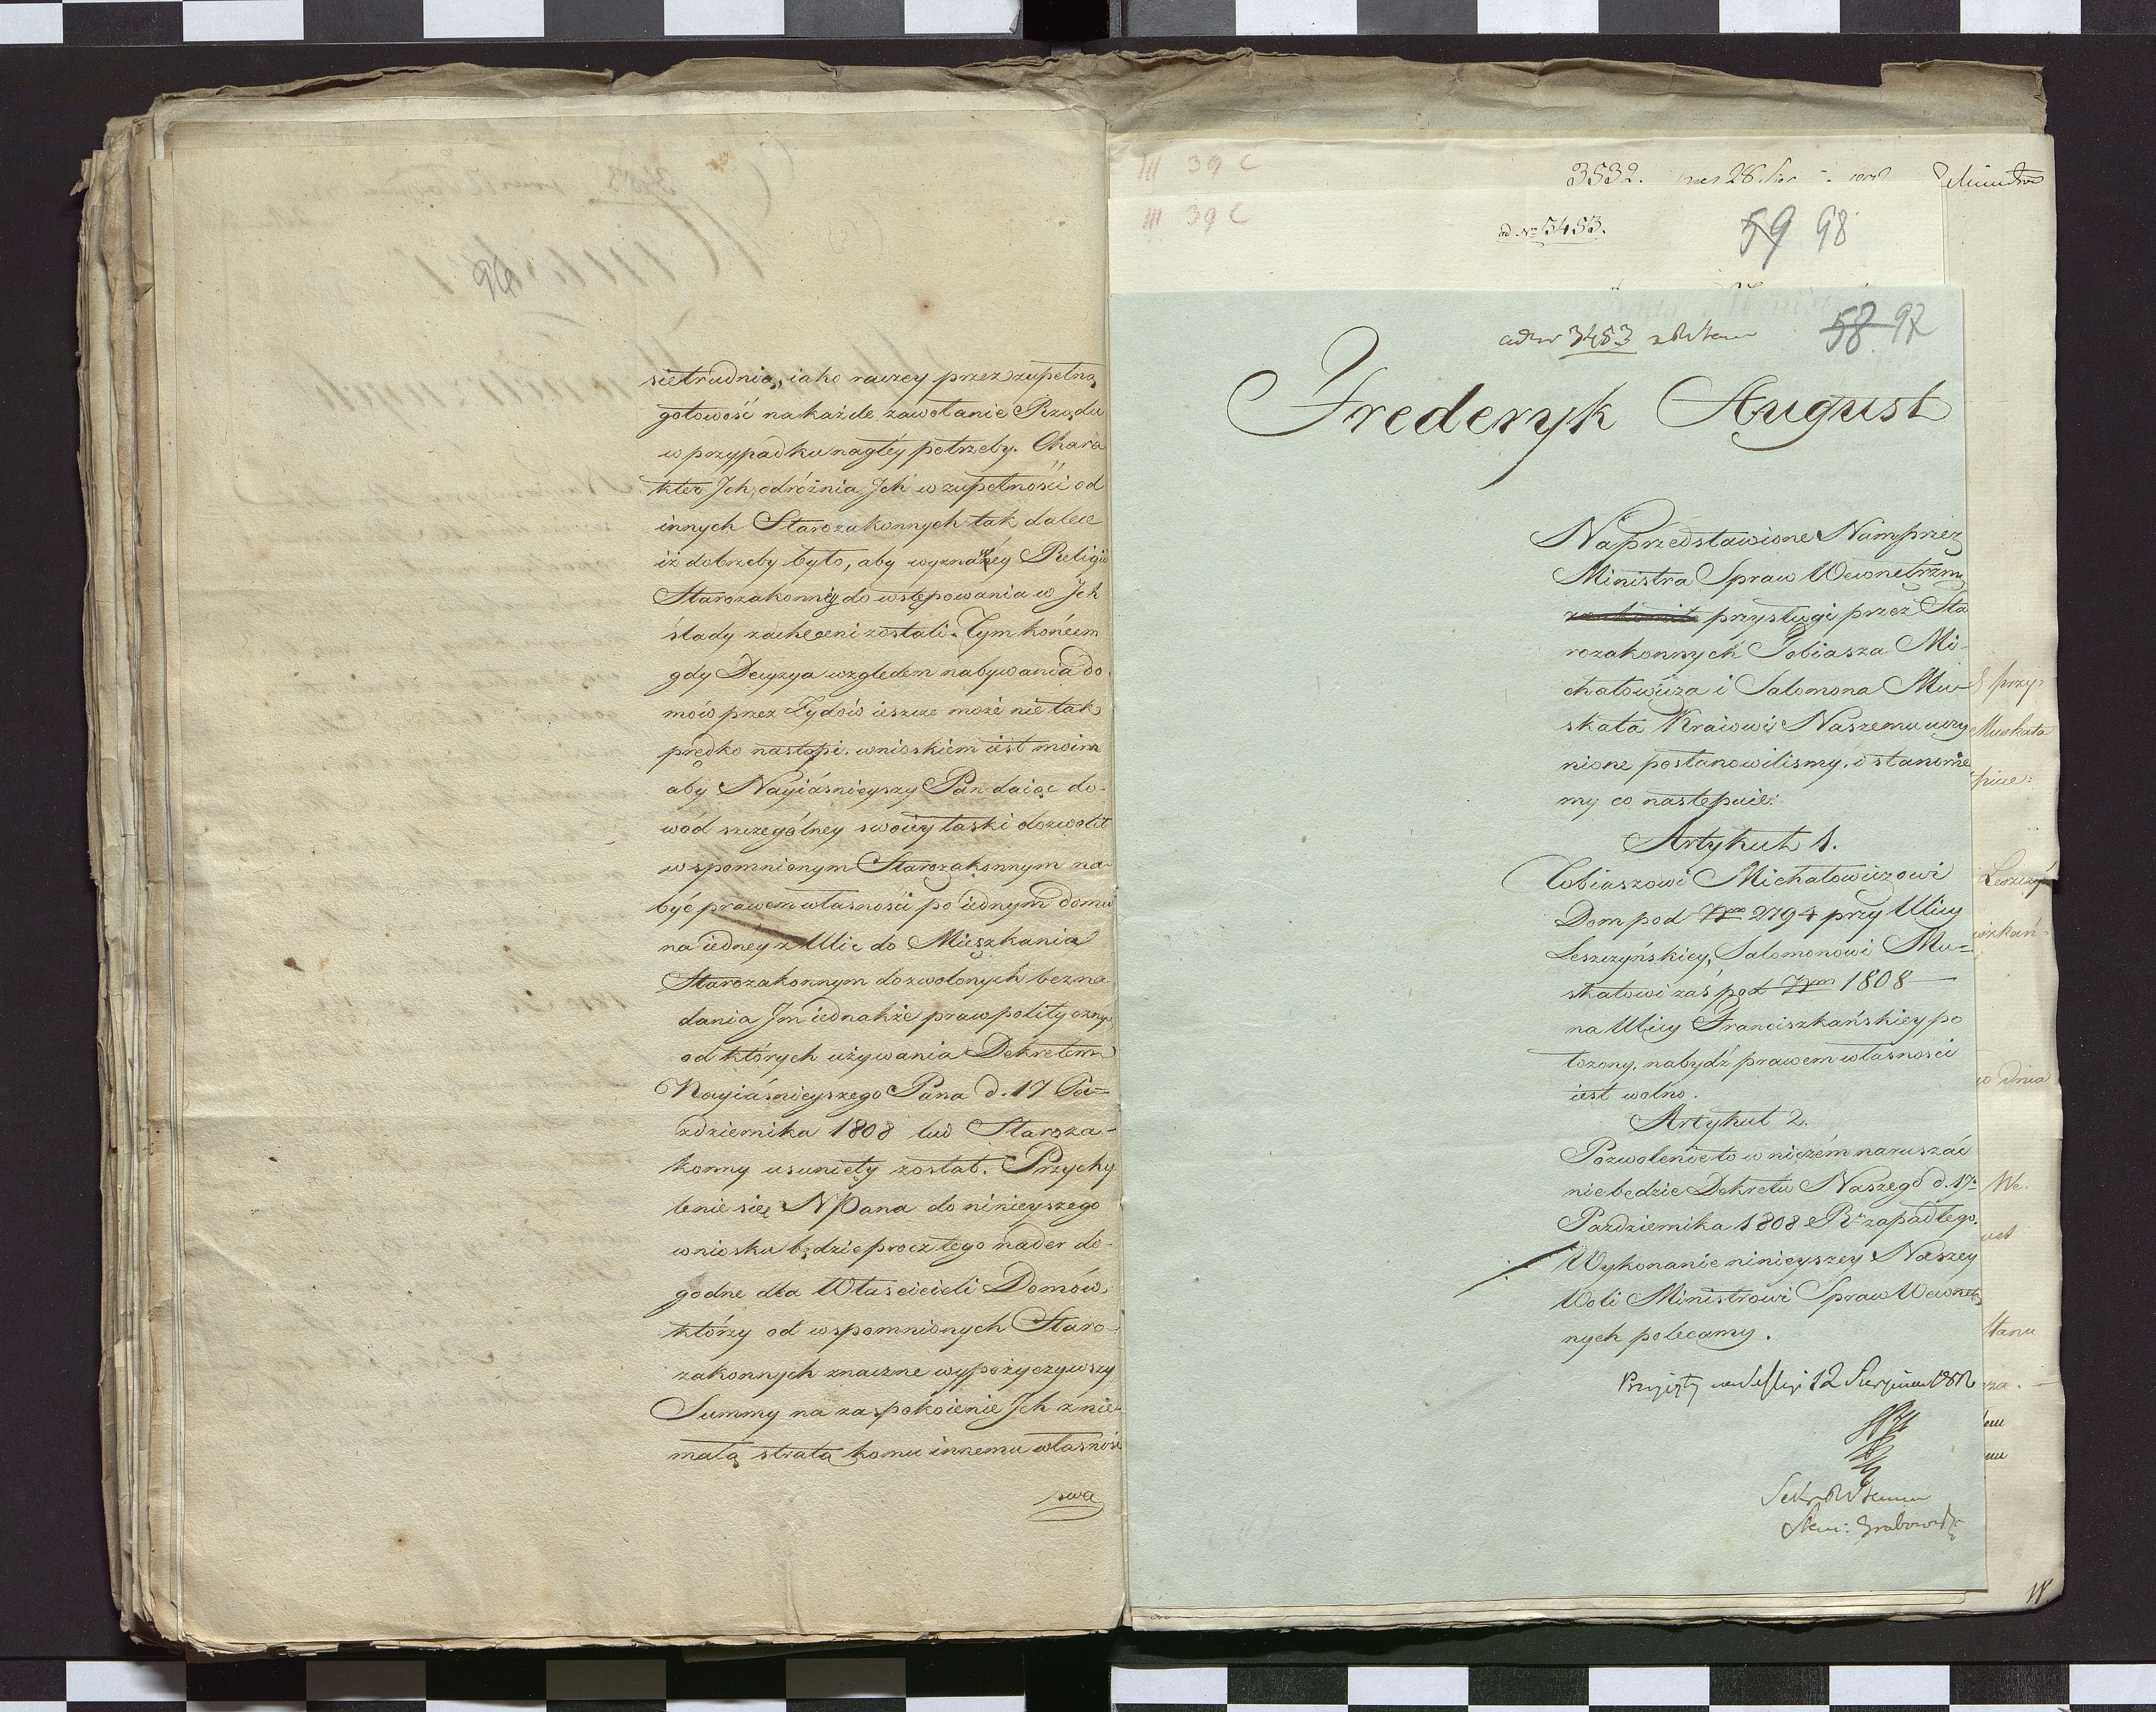 sietrudnią, iako raczey przez zupełną
gotowość na każde zawołanie Rządu
w przypadku nagłéy potrzeby. Chara
kter Jch, odróżnia Jch w zupełności od
innych Starozakonnych tak dalece
iż dobrzeby było, aby wyznawcy Religii
Starozakonnéy do wstępowania w Jch
ślady zachęceni zostali. Tym końcem
gdy Decyzya względem nabywania do
mów przez Żydów ieszcze może nie tak
prędko nastąpi, wnioskiem iest moim
aby Nayiaśnieyszy Pan daiąc do-
wód szczególney swoiey łaski dozwolił
wspomnionym Starozakonnym na-
być prawem własności po iednym domu
na iedney z Ulic do Mieszkania
Starozakonnym dozwolonych bez na
dania Jm iednakże praw politycznych
od których używania Dekretem
Nayiaśnieyszego Pana d. 17 Pa=
zdziernika 1808 lud Staroza-
konny usunięty został. Przychy
lenie się N Pana do ninieyszego
wniosku będzie procz tego nader do-
godne dla Właścicieli Domów,
którzy od wspomnionych Staro-
zakonnych znaczne wypożyczywszy
Summy na zaspokoienie Jch z nie-
małą stratą komu innemu własność
swą
III 39 C
3532.
III 39 C
ad Nr 3453.
59 98
ad Nr 3453
58 97
Frederyk August
Na przedstawione Nam przez
Ministra Spraw Wewnetrznych
przysługi przez Sta
rozakonnych Tobiasza Mi-
chałowicza i Salomona Mu-
skata Kraiowi Naszemu uczy
nione postanowilismy, i stanowie
my co nastepuie:
Artykuł 1.
Tobiaszowi Michałowiczowi
Dom pod Nrm 2794 przy Ulicy
Leszczyńskiey, Salomonowi Mu=
skatowi zaś pod Nrm 1808
na Ulicy Franciszkańskiey po
łożony, nabydź prawem własności
iest wolno.
Artykuł 2.
Pozwolenie to w niczém naruszać
niebędzie Dekretu Naszego d. 17.
Pazdziernika 1808 Rr zapadłego.
Wykonanie ninieyszey Naszey
Woli Ministrowi Spraw Wewnetrz
nych polecamy.
Przyięty na Sessyi 12 Sierpnia 1812
Grabowski
Muskata
w dnia
We.
Stanu